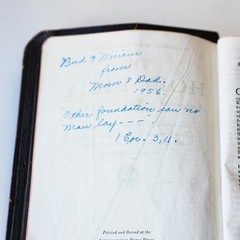 Bud & Miriam
from
Mom & Dad.
1956.
"Other foundation can no
man lay - - - .
1 Cor. 3,11.
Printed and Bound at the